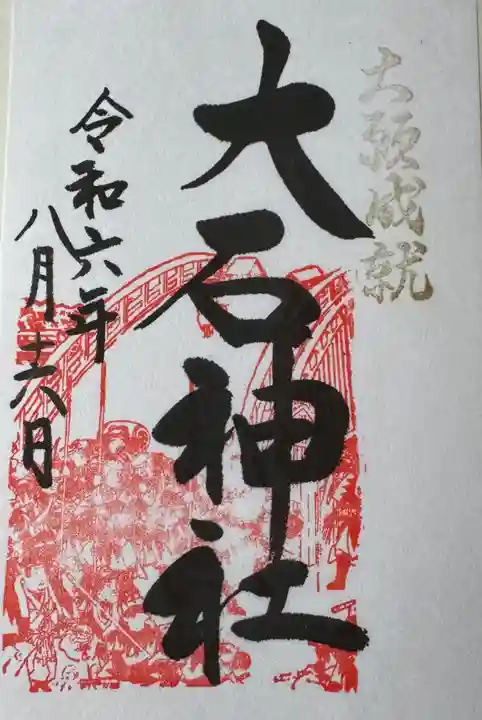 大願成就
大石神社
令和六年
八月十六日